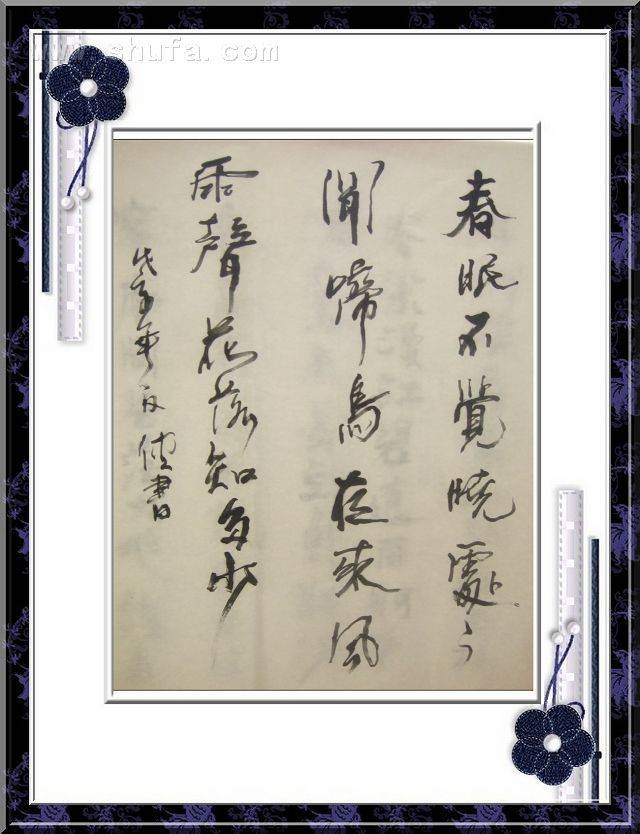 www.shufa.com
春眠不覺曉處々
聞啼鳥夜來風
雨聲花落知多少
戊子年書